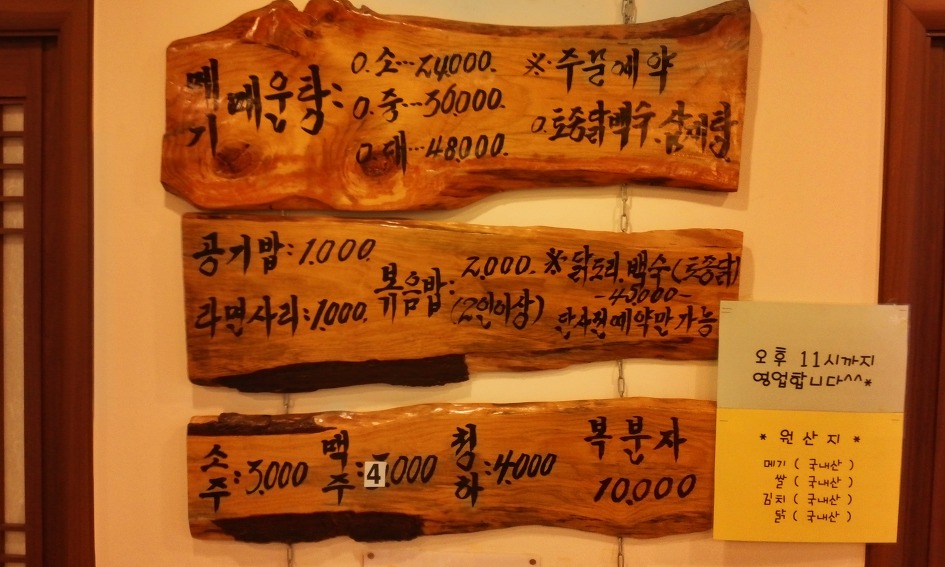 메기 매운탕:
0.소…24,000.
0.중…36,000.
0.대…48,000.
※.주문예약
0.토종닭백숙.삼계탕
공기밥:1,000
라면사리:1,000.
볶음밥: 2,000.
(2인이상)
※닭도리 백숙(토종닭)
-45,000-
단사전예약만가능
소주:3,000
맥주:4,000
청하:4,000
복분자
10,000
오후 11시까지
영업합니다^^*
* 원산지 *
메기 ( 국내산 )
쌀 ( 국내산 )
김치 ( 국내산 )
닭 ( 국내산 )